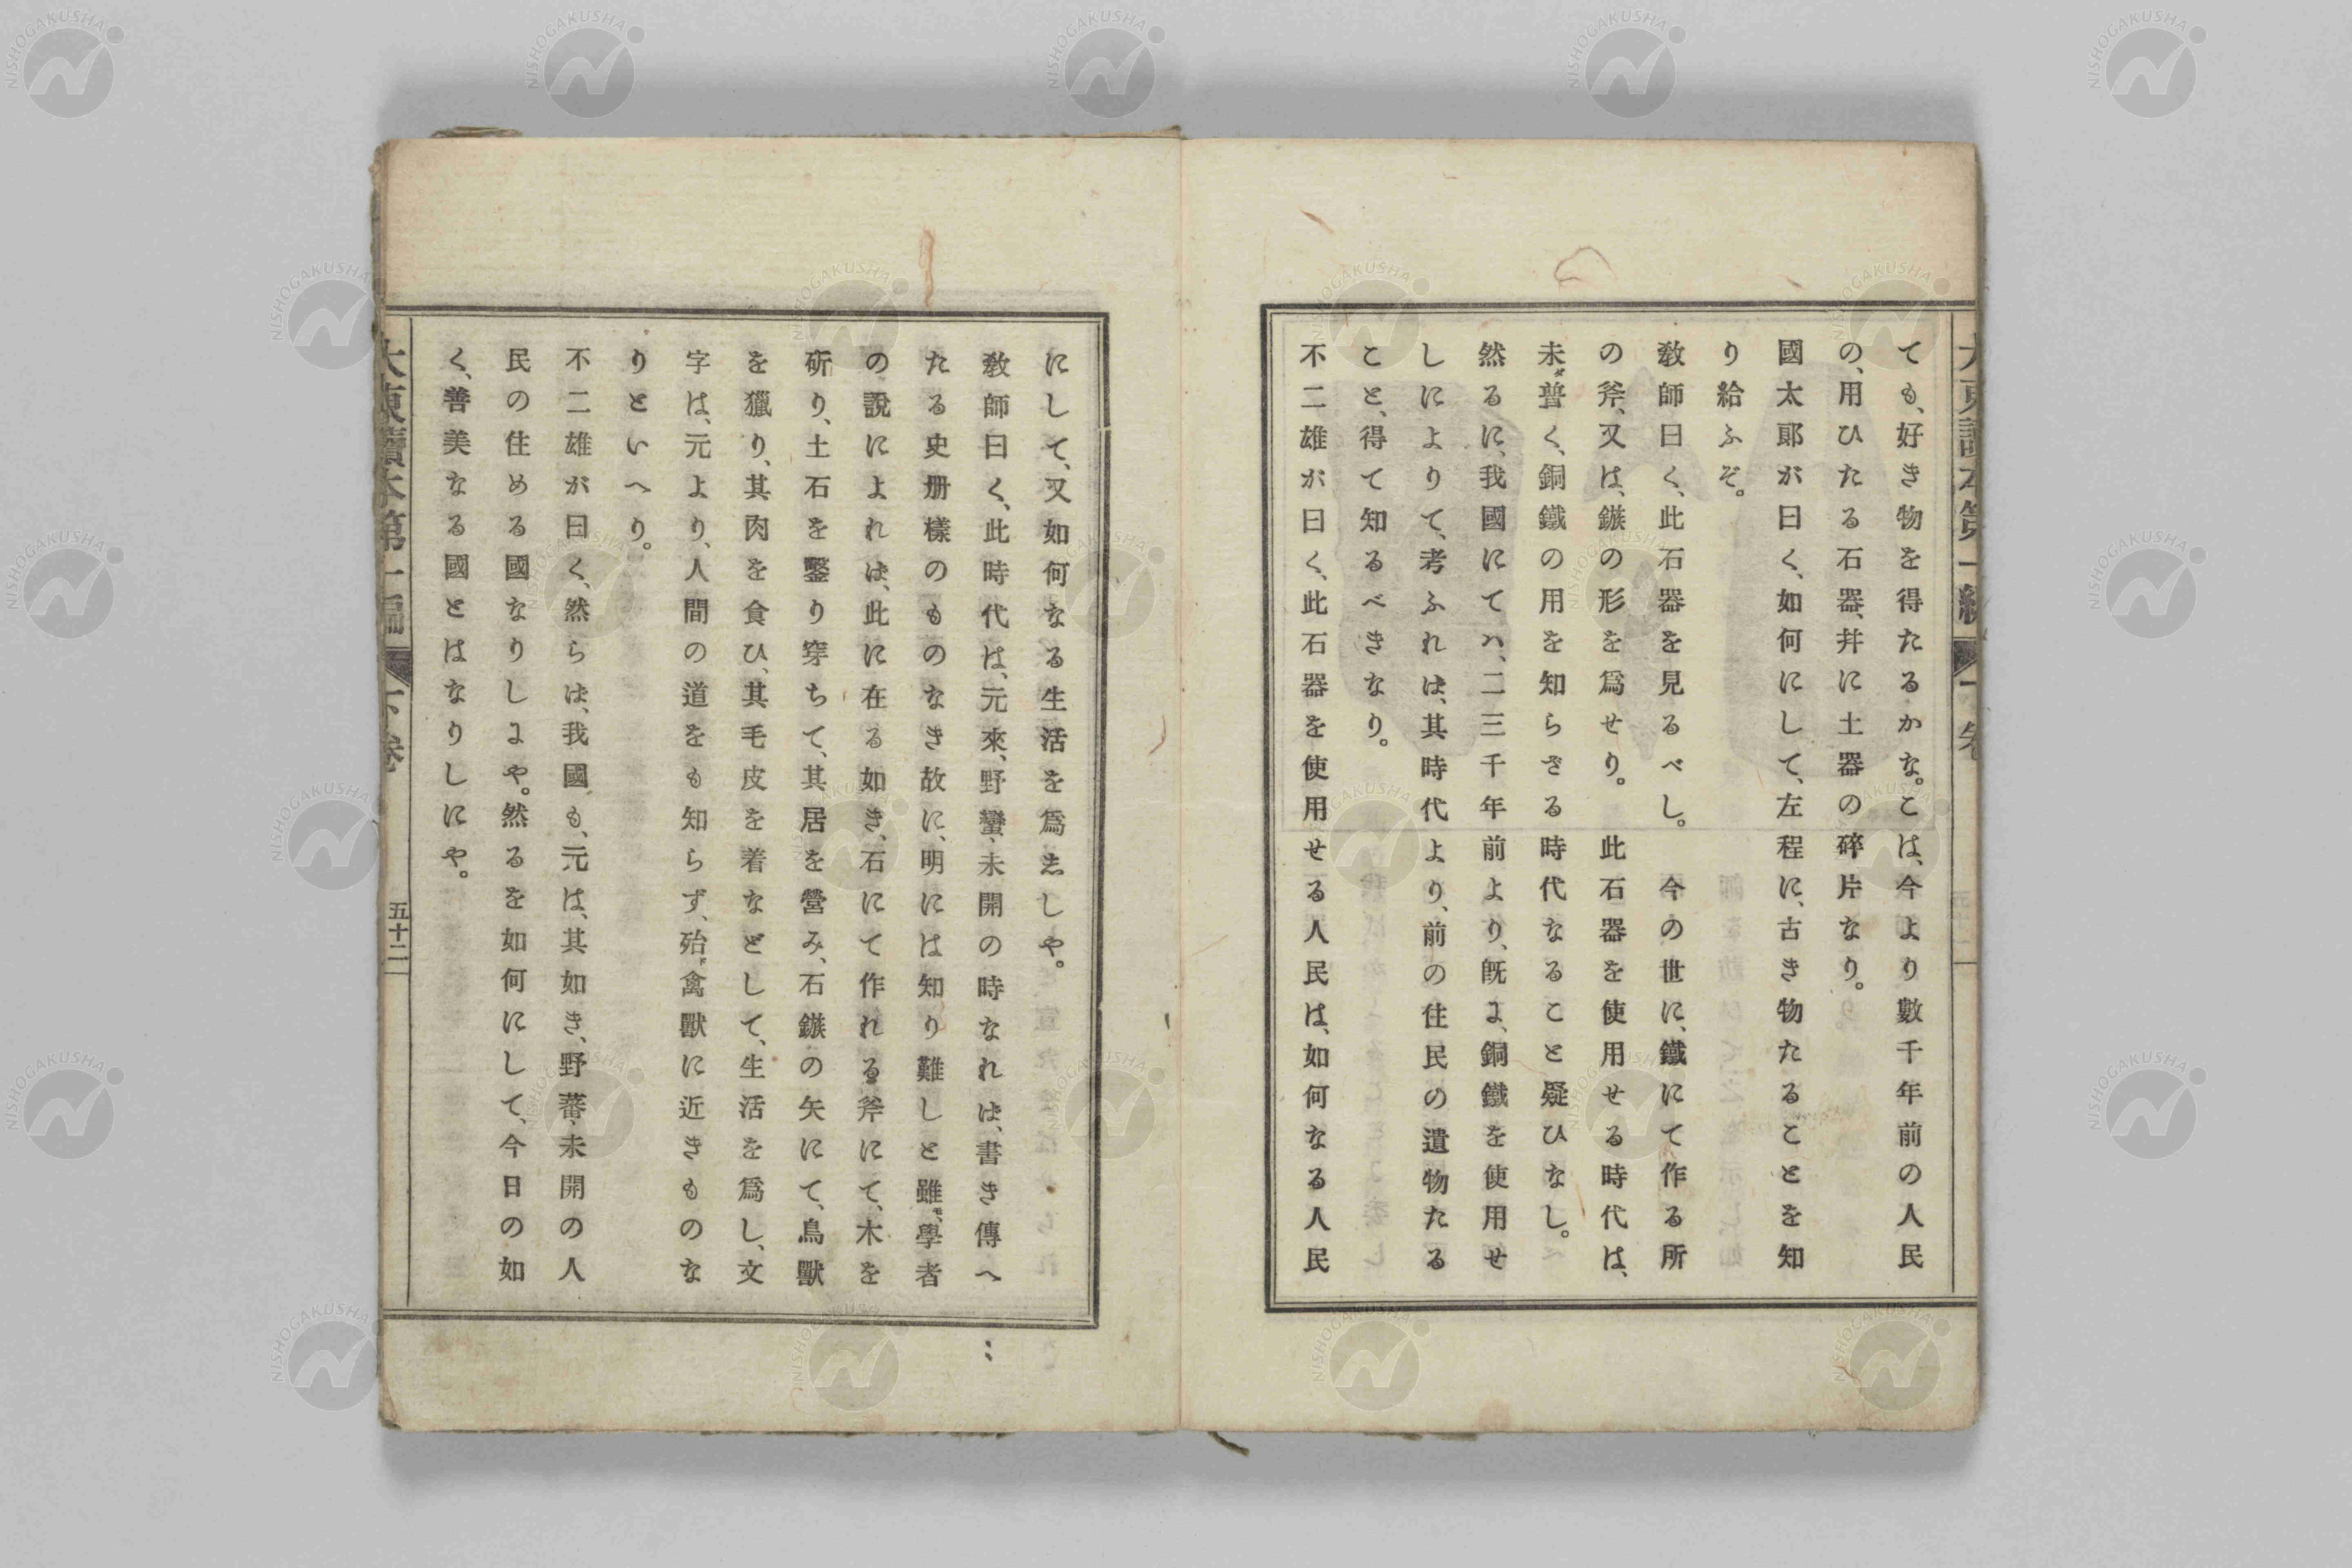 ても、好き物を得たるかな。こは、今より數千年前の人民
の、用ひたる石器、幷に土器の碎片なり。
國太郞が曰く、如何にして、左程に、古き物たることを知
り給ふぞ。
敎師曰く、此石器を見るべし。今の世に、鐵にて作る所
の斧、又は、鏃の形を爲せり。此石器を使用せる時代は、
未ダ普く、銅鐵の用を知らざる時代なること疑ひなし。
然るに、我國にてハ、二三千年前より、旣に、銅鐵を使用せ
しによりて、考ふれは、其時代より、前の住民の遺物たる
こと、得て知るべきなり。
不二雄が曰く、此石器を使用せる人民は、如何なる人民
にして、又如何なる生活を爲志しや。
敎師曰く、此時代は、元來、野蠻、未開の時なれは、書き傳へ
たる史册樣のものなき故に、明には知り難しと雖モ、學者
の說によれは、此に在る如き、石にて作れる斧にて、木を
斫り、土石を鑿り穿ちて、其居を營み、石鏃の矢にて、鳥獸
を獵り、其肉を食ひ、其毛皮を着などして、生活を爲し、文
字は、元より、人間の道をも知らず、殆ド禽獸に近きものな
りといへり。
不二雄が曰く、然らは、我國も、元は、其如き、野蕃、未開の人
民の住める國なりしにや。然るを如何にして、今日の如
く、善美なる國とはなりしにや。
大東讀本第一編 下卷 五十二
NISHOGAKUSHA